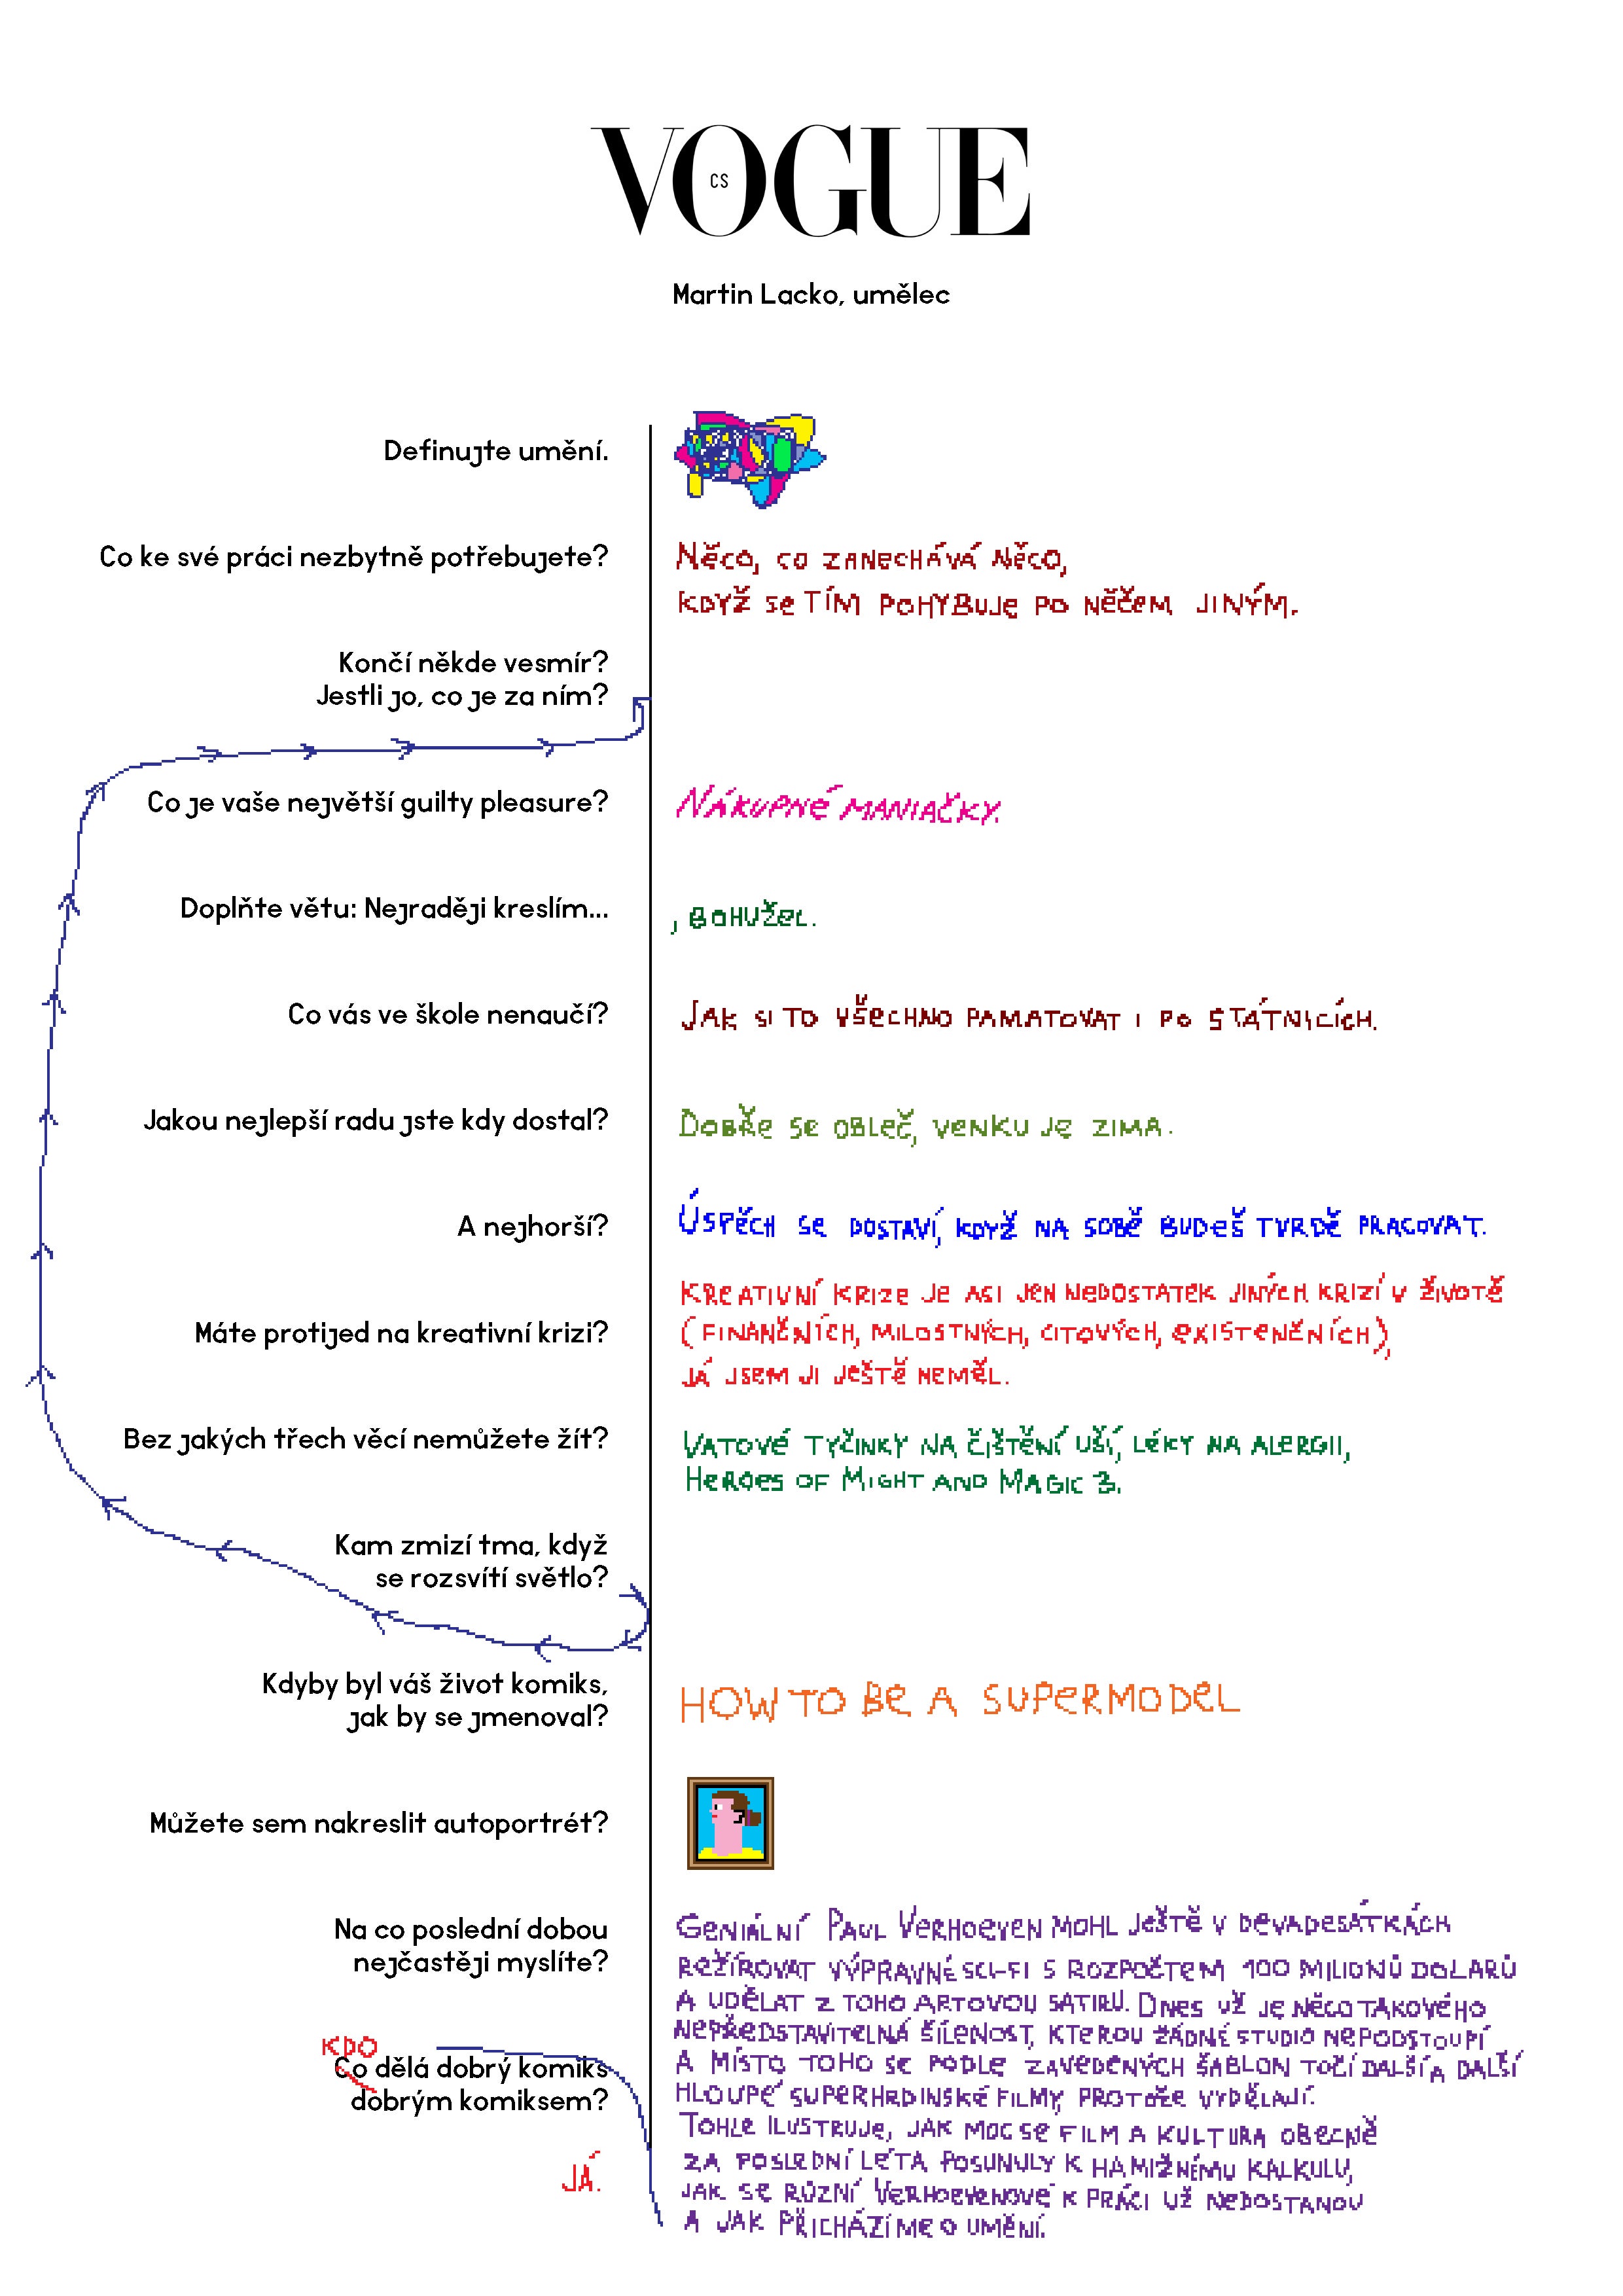 VOGUE
CS
Martin Lacko, umělec
Definujte umění.
Co ke své práci nezbytně potřebujete?
NĚCO, CO ZANECHÁVÁ NĚCO,
KDYŽ SE TÍM POHYBUJE PO NĚČEM JINÝM.
Končí někde vesmír?
Jestli jo, co je za ním?
Co je vaše největší guilty pleasure?
NÁKUPNÉ MANIAČKY.
Doplňte větu: Nejraději kreslím...
, BOHUŽEL.
Co vás ve škole nenaučí?
JAK SI TO VŠECHNO PAMATOVAT I PO STÁTNICÍCH.
Jakou nejlepší radu jste kdy dostal?
DOBŘE SE OBLEČ, VENKU JE ZIMA.
A nejhorší?
ÚSPĚCH SE DOSTAVÍ, KDYŽ NA SOBĚ BUDEŠ TVRDĚ PRACOVAT.
Máte protijed na kreativní krizi?
KREATIVNÍ KRIZE JE ASI JEN NEDOSTATEK JINÝCH KRIZÍ V ŽIVOTĚ
(FINANČNÍCH, MILOSTNÝCH, CITOVÝCH, EXISTENČNÍCH),
JÁ JSEM JI JEŠTĚ NEMĚL.
Bez jakých třech věcí nemůžete žít?
VATOVÉ TYČINKY NA ČIŠTĚNÍ UŠÍ, LÉKY NA ALERGII,
HEROES OF MIGHT AND MAGIC 3.
Kam zmizí tma, když
se rozsvítí světlo?
Kdyby byl váš život komiks,
jak by se jmenoval?
HOW TO BE A SUPERMODEL
Můžete sem nakreslit autoportrét?
Na co poslední dobou
nejčastěji myslíte?
GENIÁLNÍ PAUL VERHOEVEN MOHL JEŠTĚ V DEVADESÁTKÁCH
REŽÍROVAT VÝPRAVNÉ SCI-FI S ROZPOČTEM 100 MILIONŮ DOLARŮ
A UDĚLAT Z TOHO ARTOVOU SATIRU. DNES UŽ JE NĚCO TAKOVÉHO
NEPŘEDSTAVITELNÁ ŠÍLENOST, KTEROU ŽÁDNÉ STUDIO NEPODSTOUPÍ
A MÍSTO TOHO SE PODLE ZAVEDENÝCH ŠABLON TOČÍ DALŠÍ A DALŠÍ
HLOUPÉ SUPERHRDINSKÉ FILMY, PROTOŽE VYDĚLAJÍ.
TOHLE ILUSTRUJE, JAK MOC SE FILM A KULTURA OBECNĚ
ZA POSLEDNÍ LÉTA POSUNULY K HAMIŽNÉMU KALKULU,
JAK SE RŮZNÍ VERHOEVENOVÉ K PRÁCI UŽ NEDOSTANOU
A JAK PŘICHÁZÍME O UMĚNÍ.
KDO
Co dělá dobrý komiks
dobrým komiksem?
JÁ.